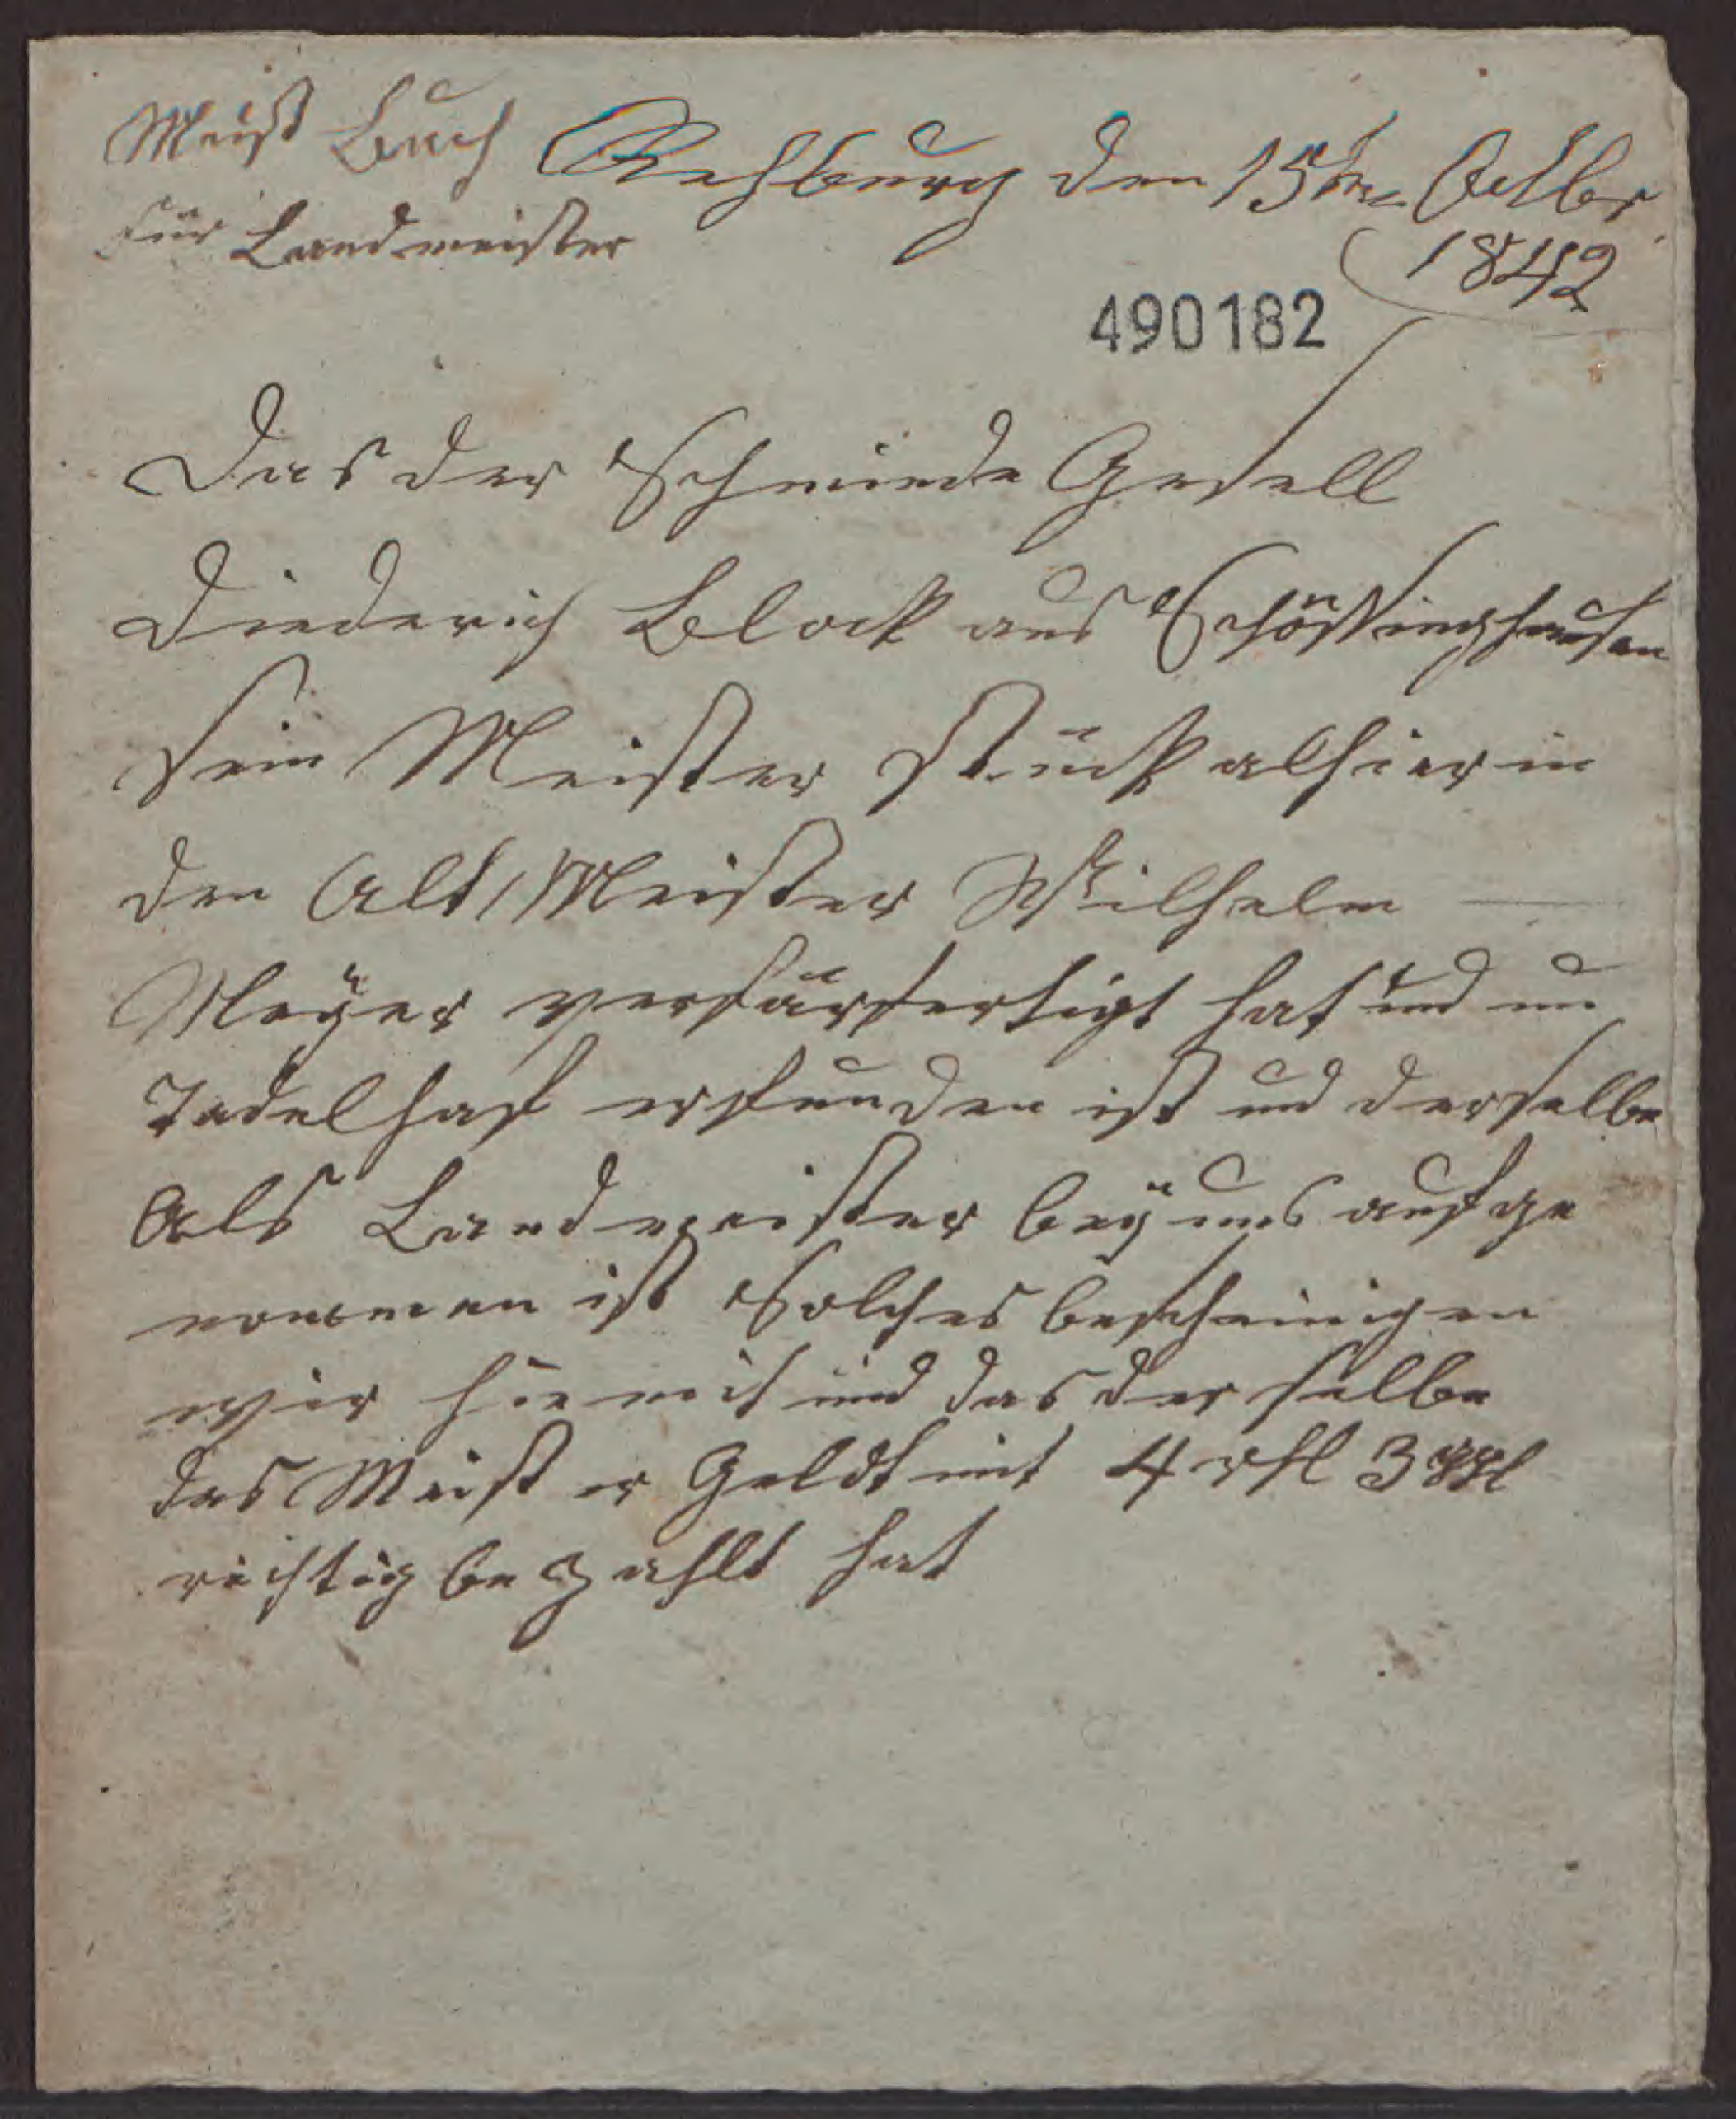 Meist Buch Rehburg den 15ten Octbr
für Landmeister
1842
490182
Das der Schmiede Gesell
Diederich Block aus Schössinghausen
sein Meister stück alhier in
den Alt Meister Wilhelm
Meÿer verfärfertigt hat und un
Tadelhaft erfunden ist und derselbe
Als Landmeister beÿ uns aufge
nommen ist Solches bescheinigen
wir hiemit und das der selbe
das Meister Geldt mit 4 rthl 3 ggl
richtig bezahlt hat